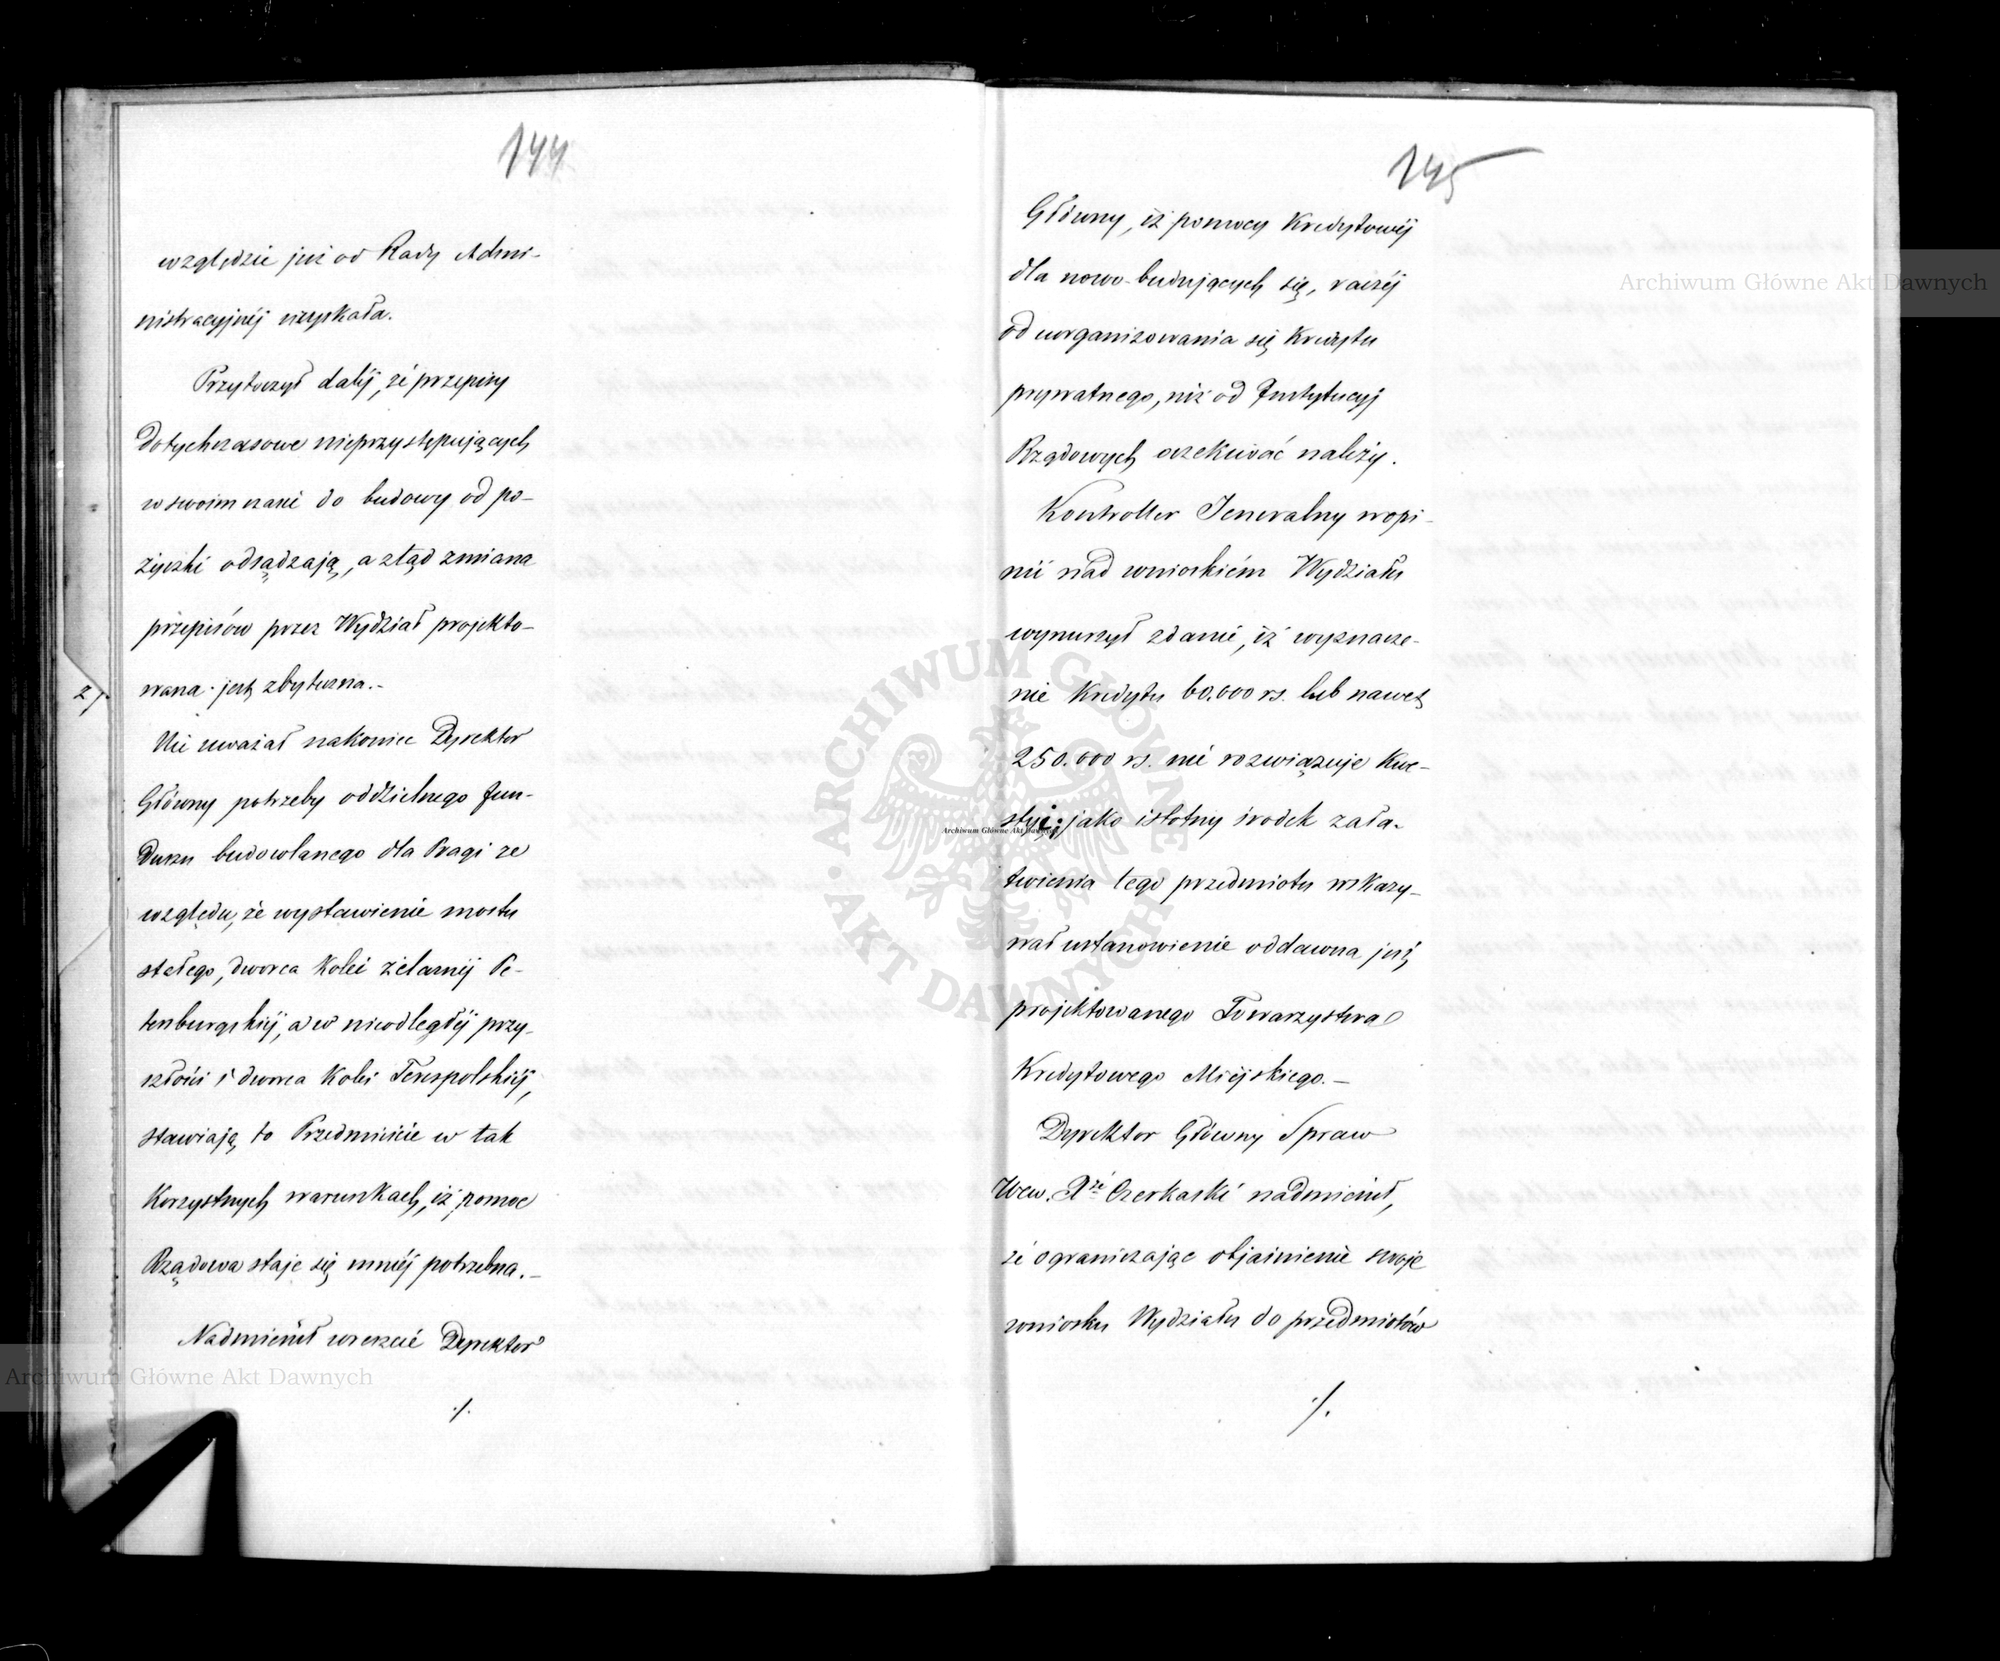 144
względzie już od Rady Admi-
nistracyjnéj uzyskała.
Przytoczył daléj, że przepisy
dotychczasowe nieprzystępujących
w swoim czasie do budowy od po-
życzki odsądzają, a ztąd zmiana
przepisów przez Wydział projekto-
wana jest zbyteczna.-
Nie uważał nakoniec Dyrektor
Główny potrzeby oddzielnego fun-
duszu budowlanego dla Pragi ze
względu, że wystawienie mostu
stałego, dworca Kolei żelaznéj Pe-
tersburgskiéj, a w nieodległéj przy-
szłości i dworca Kolei Terespolskiéj,
stawiają to Przedmieście w tak
Korzystnych warunkach, iż pomoc
Rządowa staje się mniéj potrzebna.-
Nadmienił wreszcie Dyrektor
./.
145
Główny, iż pomocy Kredytowéj
dla nowo-budujących się, raczéj
od uorganizowania się Kredytu
prywatnego, niż od Instytucyj
Rządowych oczekiwać należy.
Kontroller Jeneralny w opi-
nii nad wnioskiém Wydziału
wynurzył zdanie, iż wyznacze-
nie Kredytu 60.000 rs. lub nawet
250.000 rs. nie rozwiązuje Kwe-
styi; jako istotny środek zała-
twienia tego przedmiotu wskazy-
wał ustanowienie oddawna już
projektowanego Towarzystwa
Kredytowego Miejskiego.-
Dyrektor Główny Spraw
Wew. Xże Czerkaski nadmienił,
że ograniczając objaśnienie swoje
wniosku Wydziału do przedmiotów
./.
Archiwum Główne Akt Dawnych
Archiwum Główne Akt Dawnych
Archiwum Główne Akt Dawnych
ARCHIWUM GŁÓWNE AKT DAWNYCH